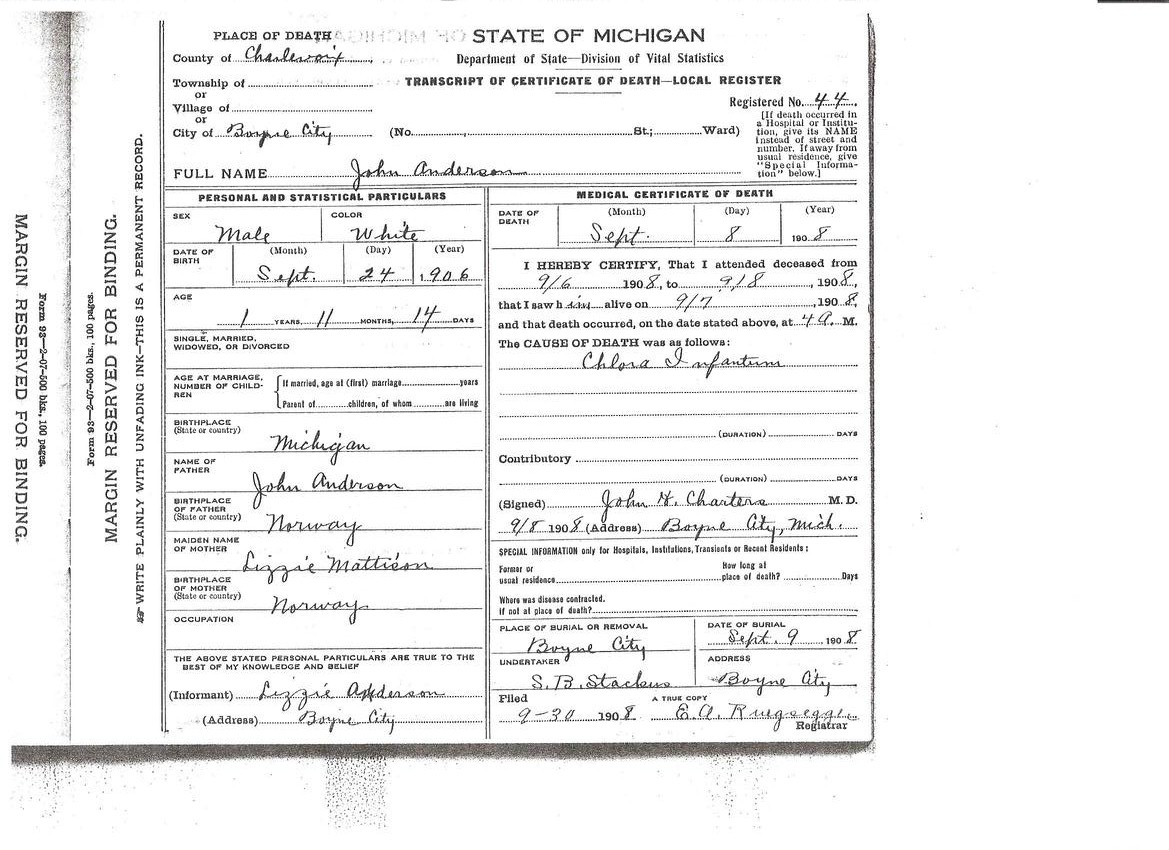 MARGIN RESERVED FOR BINDING.
Form 93—2-07-500 bks., 100 pages.
Form 93—2-07-500 bks., 100 pages.
MARGIN RESERVED FOR BINDING.
WRITE PLAINLY WITH UNFADING INK—THIS IS A PERMANENT RECORD.
PLACE OF DEATH
STATE OF MICHIGAN
County of Charlevoix
Department of State—Division of Vital Statistics
Township of
TRANSCRIPT OF CERTIFICATE OF DEATH—LOCAL REGISTER
or
Village of
Registered No. 44
or
City of Boyne City (No. St.; Ward)
[If death occurred in
a Hospital or Institu-
tion, give its NAME
instead of street and
number. If away from
usual residence, give
"Special Informa-
tion" below.]
FULL NAME John Anderson
PERSONAL AND STATISTICAL PARTICULARS
SEX
Male
COLOR
White
DATE OF
BIRTH
(Month) (Day) (Year)
Sept. 24 1906
AGE
1 YEARS, 11 MONTHS, 14 DAYS
SINGLE, MARRIED,
WIDOWED, OR DIVORCED
AGE AT MARRIAGE,
NUMBER OF CHILD-
REN
If married, age at (first) marriage years
Parent of children, of whom are living
BIRTHPLACE
(State or country)
Michigan
NAME OF
FATHER
John Anderson
BIRTHPLACE
OF FATHER
(State or country)
Norway
MAIDEN NAME
OF MOTHER
Lizzie Mattison
BIRTHPLACE
OF MOTHER
(State or country)
Norway
OCCUPATION
THE ABOVE STATED PERSONAL PARTICULARS ARE TRUE TO THE
BEST OF MY KNOWLEDGE AND BELIEF
(Informant) Lizzie Anderson
(Address) Boyne City
MEDICAL CERTIFICATE OF DEATH
DATE OF
DEATH
(Month) (Day) (Year)
Sept. 8 1908
I HEREBY CERTIFY, That I attended deceased from
9/6 1908, to 9/8, 1908,
that I saw him alive on 9/7, 1908,
and that death occurred, on the date stated above, at 4 A. M.
The CAUSE OF DEATH was as follows:
Chlora Infantum
(DURATION) DAYS
Contributory
(DURATION) DAYS
(Signed) John H. Charters M. D.
9/8 1908 (Address) Boyne City, Mich.
SPECIAL INFORMATION only for Hospitals, Institutions, Transients or Recent Residents:
Former or
usual residence
How long at
place of death? Days
Where was disease contracted,
if not at place of death?
PLACE OF BURIAL OR REMOVAL
Boyne City
DATE OF BURIAL
Sept. 9 1908
UNDERTAKER
S. B. Stackus
ADDRESS
Boyne City
Filed
9-30 1908
A TRUE COPY
E. A. Ruegsegger
Registrar